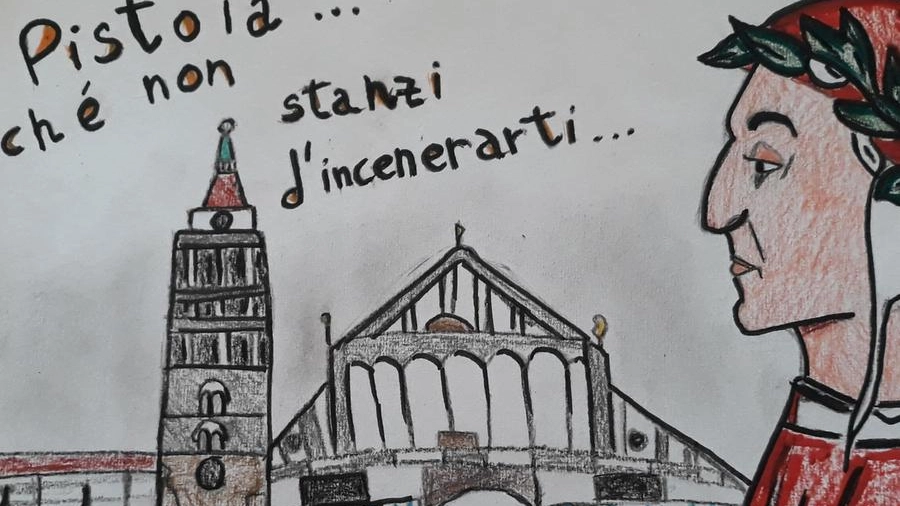 Pistoia...
ché non stanzi
d'incenerarti...